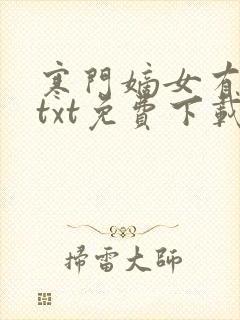 寒門嫡女有
txt免費下載
掃雷大師